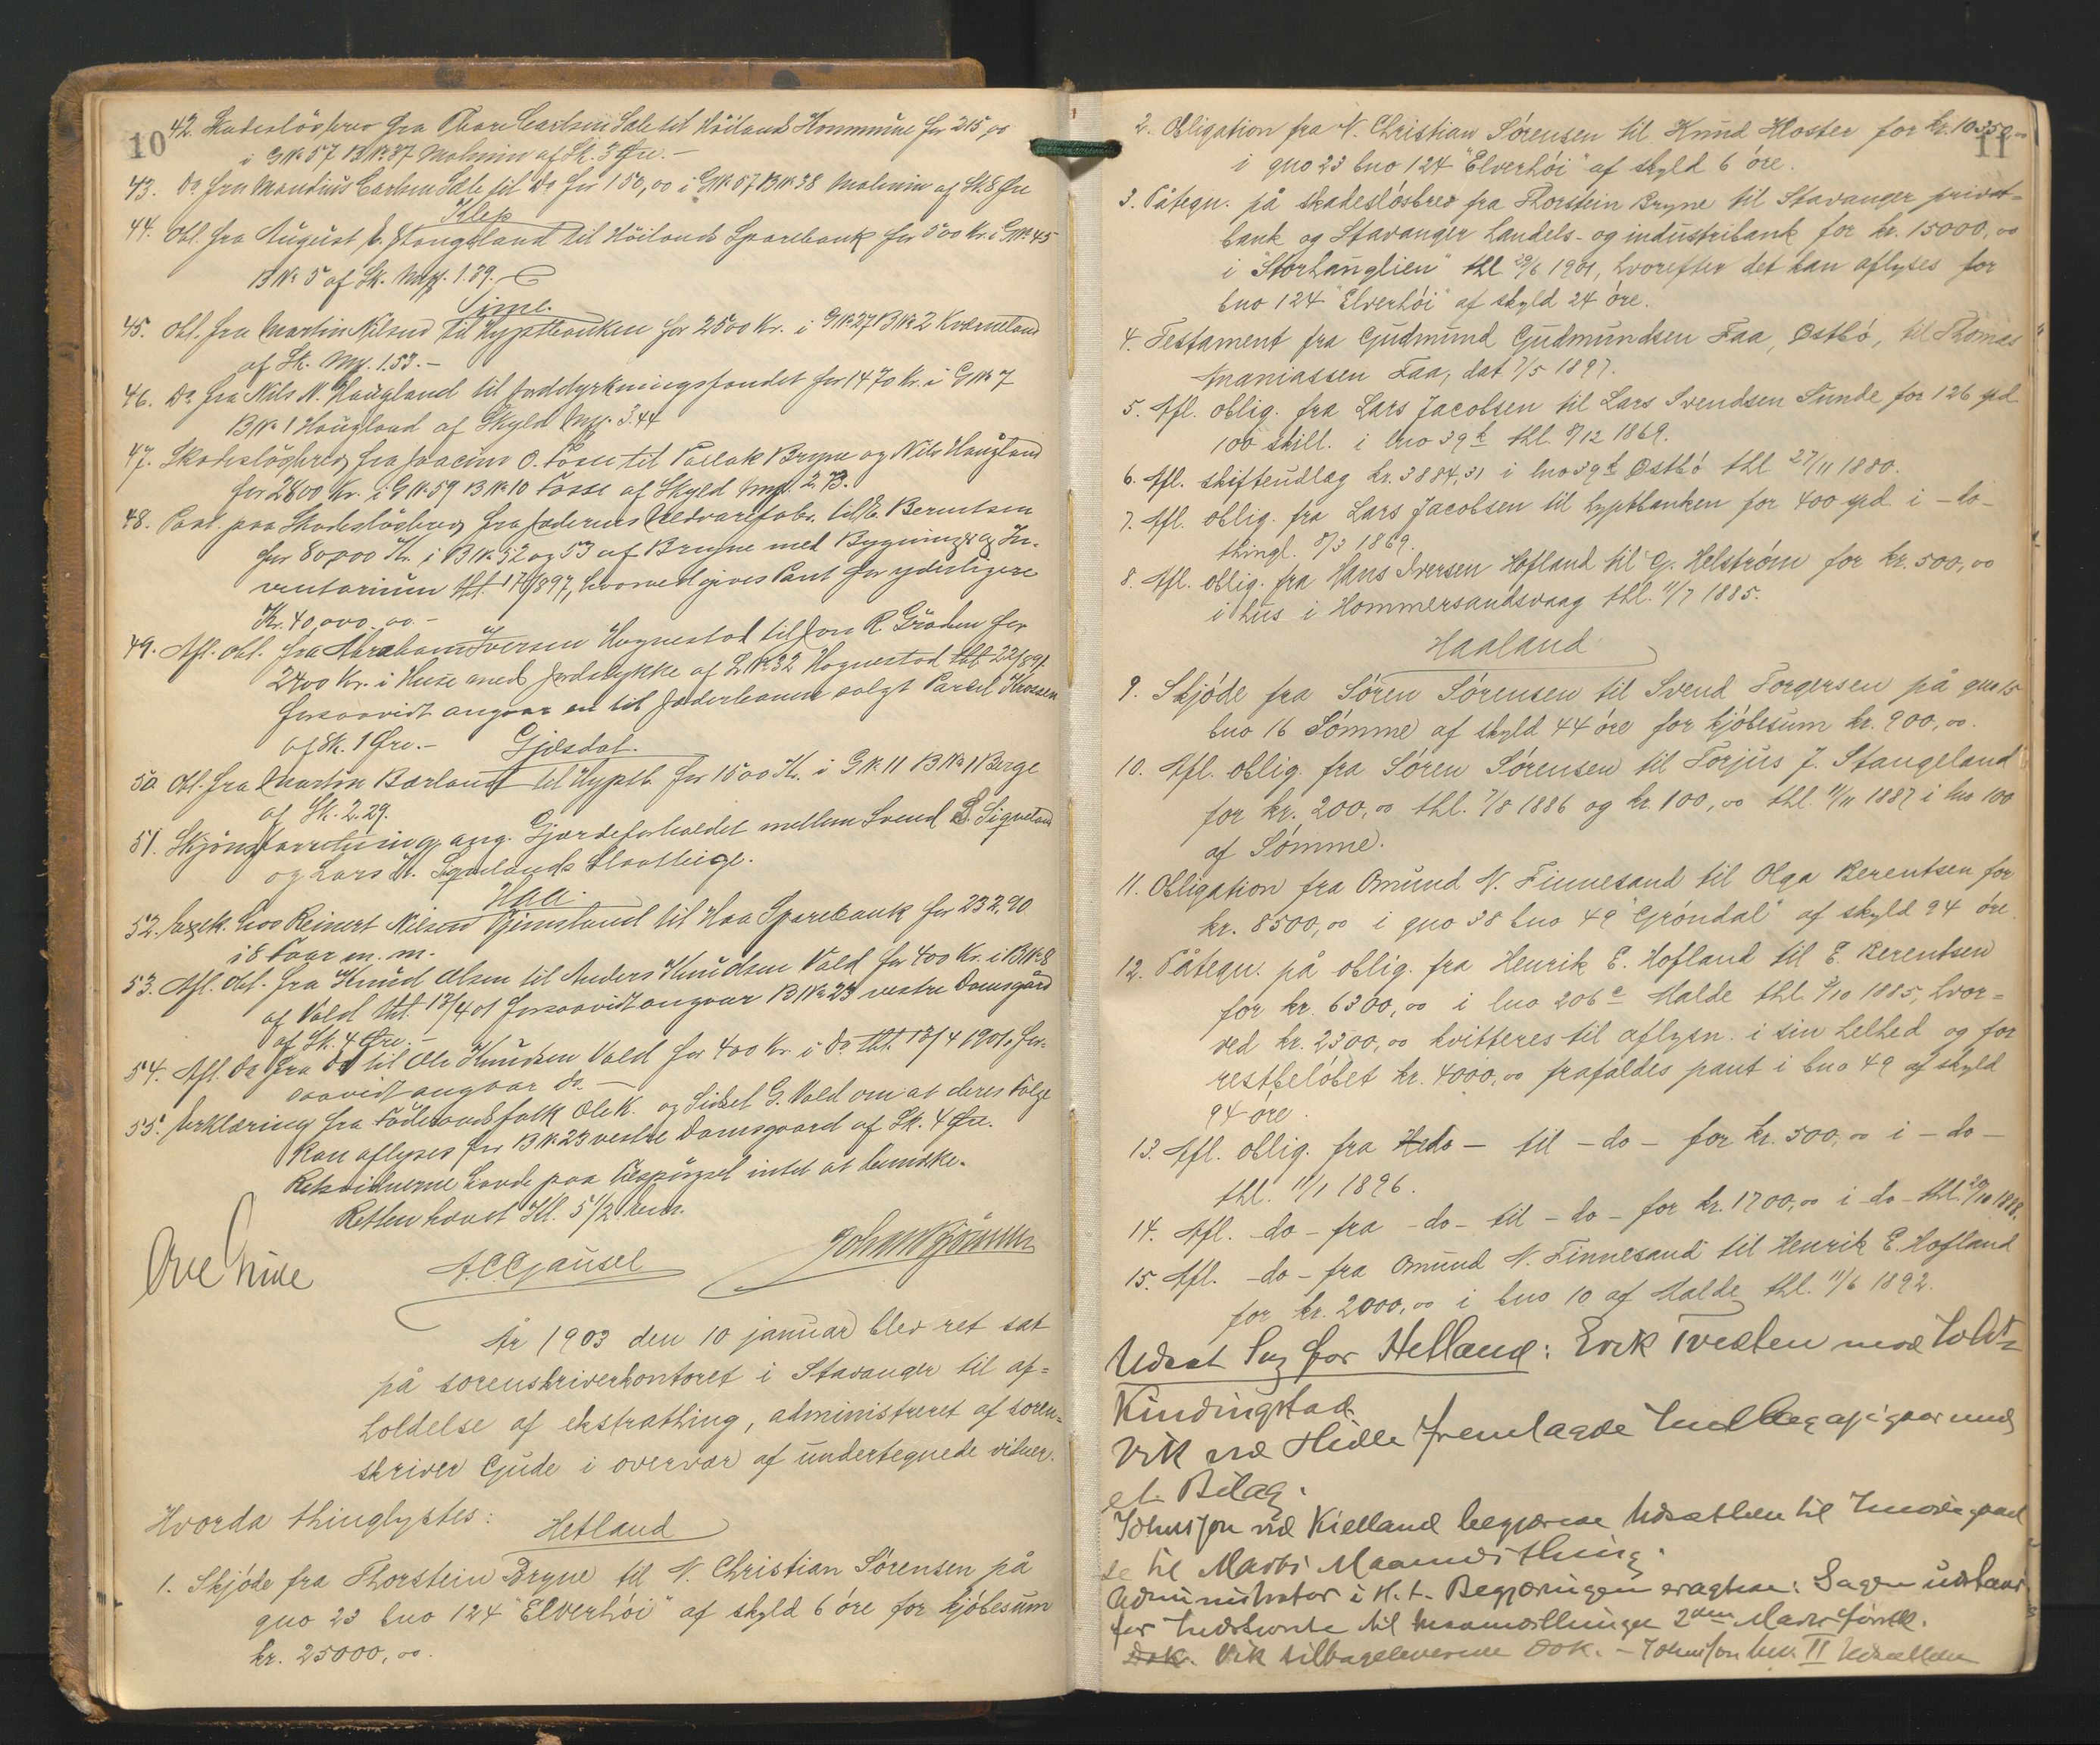 10
42. Skadeslösbrev fra Thore Carlsen Sele til Höilands Kommune for 215,00
i GNr 57 BNr 37 Molinin af Sk. 3 Øre.-
43. Do fra Mandius Carlsen Sele til Do for 150,00 i GNr 57 BNr 38 Molinin af Sk 8 Øre
Klep
44. Obl. fra August B. Stangeland til Höilands Sparebank for 500 Kr. i GNr. 45
BNr 5 af Sk. Mrk. 1.39.-
Time.
45. Obl. fra Martin Nilsen til Hyptbanken for 2500 Kr. i GNr 27 BNr 2 Kværneland
af Sk. Mrk. 1.53.-
46. Do fra Nils N. Haugland til Jorddyrkningsfondet for 1470 Kr. i GNr 7
BNr 1 Haugland af Skyld Mrk. 3.44
47. Skadeslösbrev fra Joacim O. Fosse til Tollak Bryne og Nils Haugland
for 2800 Kr. i GNr 59 BNr 10 Fosse af Skyld Mrk. 2.73.
48. Paat. paa Skadeslösbrev fra Jæderens Uldvarefabr. til E. Berentsen
for 80,000 Kr. i BNr 52 og 53 af Bryne med Bygninger og In-
ventarium thl. 17/ 1897, hvorved gives Pant for yderligere
Kr. 40,000.00.-
49. Afl. obl. fra Abraham Iversen Hognestad til Jon R. Gröden for
2400 Kr. i Huse med Jordstykke af LNr 32 Hognestad thl. 22/ 891
forsaavidt angaar en til Jæderbanen solgt Parsel Krossen
af Sk. 1 Øre.-
Gjesdal.
50. Obl. fra Martin Bærland til Hyptb. for 1500 Kr. i GNr. 11 BNr 11 Berge
af Sk. 2.29.
51. Skjönsforretning ang. Gjerdeforholdet mellem Svend S. Sigveland
og Lars K. Sigvelands Slaatteige.
Haa.
52. Exek. hos Reinert Nilsen Bjemsland til Haa Sparebank for 232,90
i 8 Faar m. m.
53. Afl. Obl. fra Knud Olsen til Anders Knudsen Vold for 400 Kr. i BNr 8
af Vold thl. 13/4 01 forsaavidt angaar BNr 23 vestre Domsgård
af Sk. 4 Øre.-
54. Afl. Do fra Do til Ole Knudsen Vold for 400 Kr. i Do thl. 13/4 1901, for-
saavidt angaar do.-
55. Erklæring fra Föderaadsfolk Ole K. og Sidsel G. Vold om at deres Folge
kan aflyses for BNr 23 vestre Domsgaard af Sk. 4 Øre.
Retsvidnerne havde paa Tilspörgsel intet at bemærke.
Retten hævet Kl. 5 1/2 Em.
A. C. Gausel
År 1903 den 10 januar blev ret sat
på sorenskriverkontoret i Stavanger til af-
holdelse af ekstrathing, administreret af soren-
skriver Gude i overvær af undertegnede vidner.
Hvorda thinglystes:
Hetland
1. Skjøde fra Thorstein Bryne til N. Christian Sørensen på
gno 23 bno 124 "Elverhöi" af skyld 6 öre for kjöbesum
kr. 25000,00.
11
2. Obligation fra N. Christian Sørensen til Knud Kloster for kr. 10350,00
i gno 23 bno 124 "Elverhöi" af skyld 6 öre.
3. Påtegn. på skadeslösbrev fra Thorstein Bryne til Stavanger privat-
bank og Stavanger handels- og industribank for kr. 15000,00
i "Storhauglien" thl. 29/6 1901, hvorefter det kan aflyses for
bno 124 "Elverhöi" af skyld 24 öre.
4. Testament fra Gudmund Gudmundsen Faa, Østbö, til Thomas
Maniassen Faa, dat. 7/5 1897.
5. Afl. oblig. fra Lars Jacobsen til Lars Svendsen Tunde for 126 spd
100 skill. i lno 39 thl. 8/12 1869.
6. Afl. skifteudlæg kr. 3884,31 i lno 39 Østbö thl. 27/11 1880.
7. Afl. oblig. fra Lars Jacobsen til hyptbanken for 400 spd i -do-
thingl. 8/3 1869.
8. Afl. oblig. fra Hans Iversen Hofland til G. Helstrøm for kr. 500,00
i hus i Hommersandsvaag thl. 11/7 1885.
Haaland
9. Skjöde fra Søren Sørensen til Svend Torgersen på gno 15
bno 16 Sömme af skyld 44 öre for kjöbesum kr. 900,00.
10. Afl. oblig. fra Søren Sørensen til Torjus J. Stangeland
for kr. 200,00 thl. 7/8 1886 og kr. 100,00 thl. 11/11 1887 i lno 100
af Sömme.
11. Obligation fra Omund N. Finnesand til Olga Berentsen for
kr. 8500,00 i gno 38 bno 49 "Gröndal" af skyld 94 öre.
12. Påtegn. på oblig. fra Henrik E. Hofland til E. Berentsen
for kr. 6300,00 i lno 206c Halde thl. 3/10 1885, hvor-
ved kr. 2300,00 kvitteres til aflysn. i sin helhed og for
restbelöbet kr. 4000,00 frafaldes pant i bno 49 af skyld
94 öre.
13. Afl. oblig. fra -do- til -do- for kr. 500,00 i -do-
thl. 11/1 1896.
14. Afl. -do- fra -do- til -do- for kr. 1700,00 i -do- thl. 20/10 1888.
15. Afl. -do- fra Omund N. Finnesand til Henrik E. Hofland
for kr. 2000,00 i bno 10 af Halde thl. 11/6 1892.
Udsat Sag for Hetland: Erik Tvedten mod
Kindingstad.
Vik ved Hidle fremlagde Indlæg af igaar med
et Bilag.
Johnsson ved Kielland begjærede Udsættelse til
se til Marts Maanedsthing.
Administrator i H. t. Begjæringen eragtede: Sagen udsættes
for Indstevnte til Maanedsthinget 2den Marts förstk.
Vik tilbageleverede Dok. - Johnsson